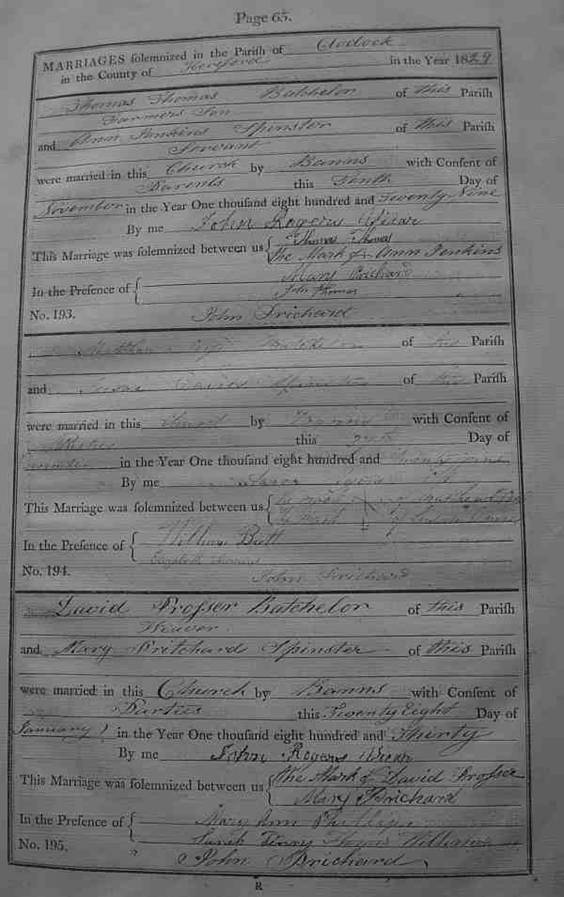 Page 65.
MARRIAGES solemnized in the Parish of Clodock
in the County of Hereford in the Year 1829
Thomas Thomas Batchelor of this Parish
Farmers Son
and Ann Jenkins Spinster of this Parish
Servant
were married in this Church by Banns with Consent of
Parents this Tenth Day of
November in the Year One thousand eight hundred and Twenty Nine
By me John Rogers Vicar
This Marriage was solemnized between us { Thomas Thomas
The Mark of Ann Jenkins
In the Presence of { Mary Prichard
John Thomas
No. 193. John Prichard
of this Parish
and Spinster of this Parish
were married in this Church by Banns with Consent of
this Day of
in the Year One thousand eight hundred and Twenty nine
By me
This Marriage was solemnized between us { The mark of
The Mark of
In the Presence of { William Butt
Elizabeth
No. 194. John Prichard
David Prosser Batchelor of this Parish
Weaver
and Mary Pritchard Spinster of this Parish
were married in this Church by Banns with Consent of
Parties this Twenty Eight Day of
January in the Year One thousand eight hundred and Thirty
By me John Rogers Vicar
This Marriage was solemnized between us { The Mark of David Prosser
Mary Prichard
In the Presence of { Mary Ann
Sarah Williams
No. 195. John Prichard
R